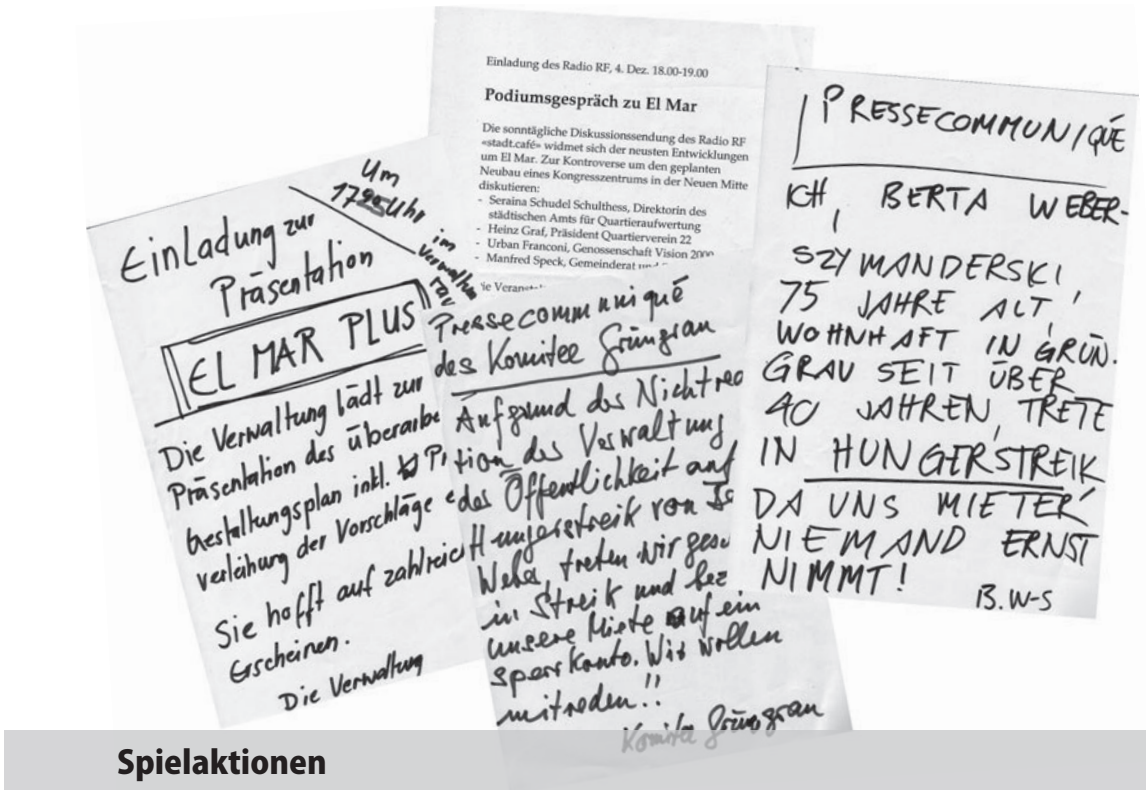 Einladung zur
Präsentation
EL MAR PLUS
Um
17
Uhr im
Die Verwaltung lädt zur
Präsentation des überarbe
Gestaltungsplan inkl.
verleihung der Vorschläge
Sie hofft auf zahlreich
Erscheinen.
Die Verwaltung
Einladung des Radio RF, 4. Dez. 18.00-19.00
Podiumsgespräch zu El Mar
Die sonntägliche Diskussionssendung des Radio RF
«stadt.café» widmet sich der neusten Entwicklungen
um El Mar. Zur Kontroverse um den geplanten
Neubau eines Kongresszentrums in der Neuen Mitte
diskutieren:
- Seraina Schudel Schulthess, Direktorin des
städtischen Amts für Quartieraufwertung
- Heinz Graf, Präsident Quartierverein 22
- Urban Franconi, Genossenschaft Vision 2000
- Manfred Speck, Gemeinderat
Pressecommuniqué
des Komitee Grüngrau
Aufgrund des Nichtrea
tion der Verwaltung
der Öffentlichkeit auf
Hungerstreik von
Weber, treten wir
in Streik und bez
unsere Miete auf ein
Sperrkonto. Wir wollen
mitreden!!
Komitee Grüngrau
PRESSECOMMUNIQUÉ
ICH, BERTA WEBER-
SZYMANDERSKI,
75 JAHRE ALT,
WOHNHAFT IN GRÜN-
GRAU SEIT ÜBER
40 JAHREN, TRETE
IN HUNGERSTREIK
DA UNS MIETER
NIEMAND ERNST
NIMMT!
B.W-S
Spielaktionen